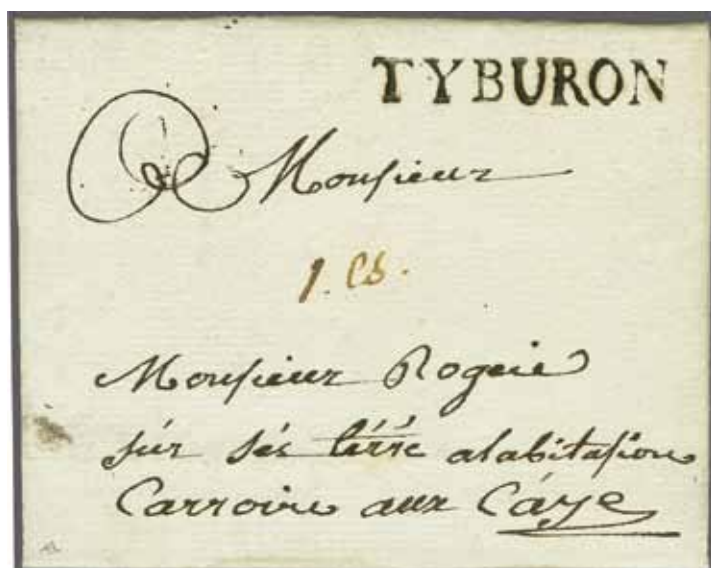 TYBURON
A Monsieur
1. Es.
Monsieur Rogeié
sur sés térré alabitasion
Carroire aux Caÿe